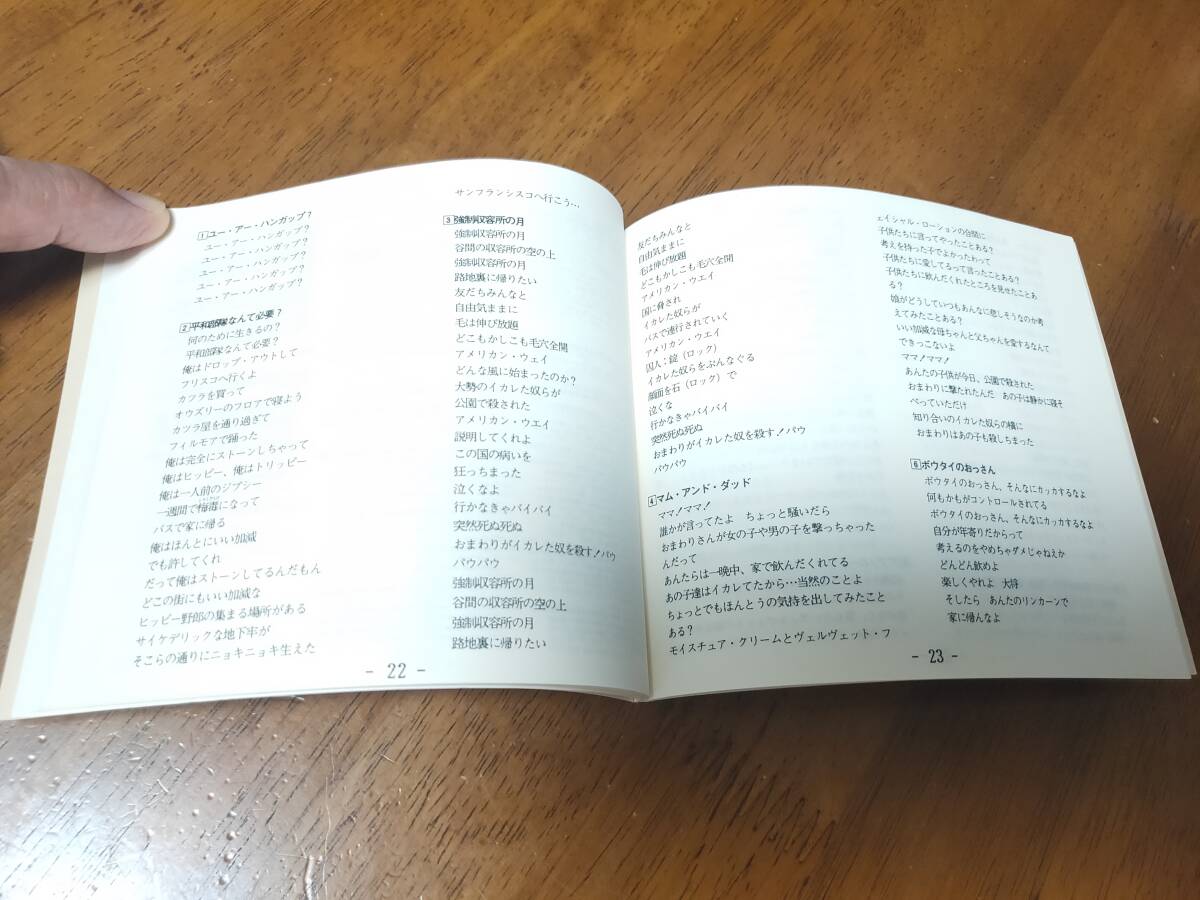 1 ユー・アー・ハンガップ?
ユー・アー・ハンガップ?
ユー・アー・ハンガップ?
ユー・アー・ハンガップ?
ユー・アー・ハンガップ?
2 平和部隊なんて必要?
何のために生きるの?
平和部隊なんて必要?
俺はドロップ・アウトして
フリスコへ行くよ
カツラを買って
オウズリーのフロアで寝よう
カツラ屋を通り過ぎて
フィルモアで踊った
俺は完全にストーンしちゃって
俺はヒッピー、俺はトリッピー
俺は一人前のジプシー
一週間で梅毒になって
バスで家に帰る
俺はほんとにいい加減
でも許してくれ
だって俺はストーンしてるんだもん
どこの街にもいい加減な
ヒッピー野郎の集まる場所がある
サイケデリックな地下牢が
そこらの通りにニョキニョキ生えた
サンフランシスコへ行こう…
3 強制収容所の月
強制収容所の月
谷間の収容所の空の上
強制収容所の月
路地裏に帰りたい
友だちみんなと
自由気ままに
毛は伸び放題
どこもかしこも毛穴全開
アメリカン・ウェイ
どんな風に始まったのか?
大勢のイカレた奴らが
公園で殺された
アメリカン・ウエイ
説明してくれよ
この国の病いを
狂っちまった
泣くなよ
行かなきゃバイバイ
突然死ぬ死ぬ
おまわりがイカレた奴を殺す!バウ
バウバウ
強制収容所の月
谷間の収容所の空の上
強制収容所の月
路地裏に帰りたい
- 22 -
友だちみんなと
自由気ままに
毛は伸び放題
どこもかしこも毛穴全開
アメリカン・ウエイ
国に脅され
イカレた奴らが
バスで連行されていく
アメリカン・ウエイ
囚人:錠(ロック)
イカレた奴らをぶんなぐる
顔面を石(ロック)で
泣くな
行かなきゃバイバイ
突然死ぬ死ぬ
おまわりがイカレた奴を殺す!バウ
バウバウ
4 マム・アンド・ダッド
ママ!ママ!
誰かが言ってたよ ちょっと騒いだら
おまわりさんが女の子や男の子を撃っちゃった
んだって
あんたらは一晩中、家で飲んだくれてる
あの子達はイカレてたから…当然のことよ
ちょっとでもほんとうの気持を出してみたこと
ある?
モイスチュア・クリームとヴェルヴェット・フ
ェイシャル・ローションの合間に
子供たちに言ってやったことある?
考えを持った子でよかったわって
子供たちに愛してるって言ったことある?
子供たちに飲んだくれたところを見せたことあ
る?
娘がどうしていつもあんなに悲しそうなのか考
えてみたことある?
いい加減な母ちゃんと父ちゃんを愛するなんて
できっこないよ
ママ!ママ!
あんたの子供が今日、公園で殺された
おまわりに撃たれたんだ あの子は静かに寝そ
べっていただけ
知り合いのイカレた奴らの横に
おまわりはあの子も殺しちまった
5 ボウタイのおっさん
ボウタイのおっさん、そんなにカッカするなよ
何もかもがコントロールされてる
ボウタイのおっさん、そんなにカッカするなよ
自分が年寄りだからって
考えるのをやめちゃダメじゃねえか
どんどん飲めよ
楽しくやれよ 大将
そしたら あんたのリンカーンで
家に帰んなよ
- 23 -